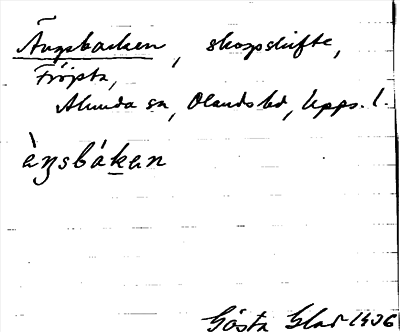 Ängsbacken, skogsskifte,
Fröjsta,
Alunda sn, Olands hd, Upps. l.
àŋsbákan
Gösta Glad 1406